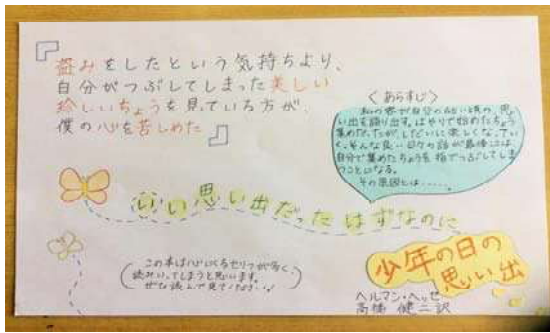 『
盗みをしたという気持ちより、
自分がつぶしてしまった美しい
珍しいちょうを見ている方が、
僕の心を苦しめた
』
〈あらすじ〉
私の客が自分の幼い頃の、思
い出を語り出す。はやりで始めたちょう
集めだったが、しだいに楽しくなってい
く。そんな良い日々の話が最後には、
自分で集めたちょうを指でつぶしてしま
うことになる。
その原因とは……。
いい思い出だったはずなのに
この本は心にくるセリフが多く、
読み入ってしまうと思います。
ぜひ読んで見てください!
少年の日の
思い出
ヘルマン・ヘッセ
高橋健二訳